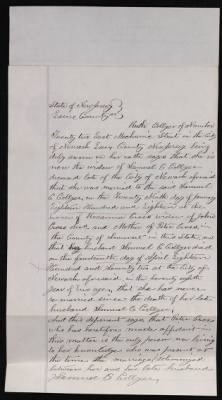 State of New Jersey
Essex County ss
Ruth Collyer of Number
Twenty two East Mechanic Street in the City
of Newark Essex County New Jersey being
duly sworn on her oath says that she is
now the widow of Samuel C Collyer
deceased late of the City of Newark aforesaid
that she was married to the said Samuel
C Collyer, on the Twenty Ninth day of January
Eighteen Hundred and Eighteen at the
house of Cross widow of John
Cross decd. and Mother of Peter Cross, in
the County of in this state, and
that her husband Samuel C Collyer died
on the fourteenth day of April Eighteen
Hundred and Seventy two at the City of
Newark aforesaid in the
year of his age, that she has never
re-married since the death of her late
husband Samuel C Collyer,
And this deponent says that Peter Cross
who has heretofore made affidavit in
this matter is the only person now living
to her knowledge who was present at
the time the marriage solemnized
between her and her late husband
Samuel C Collyer,